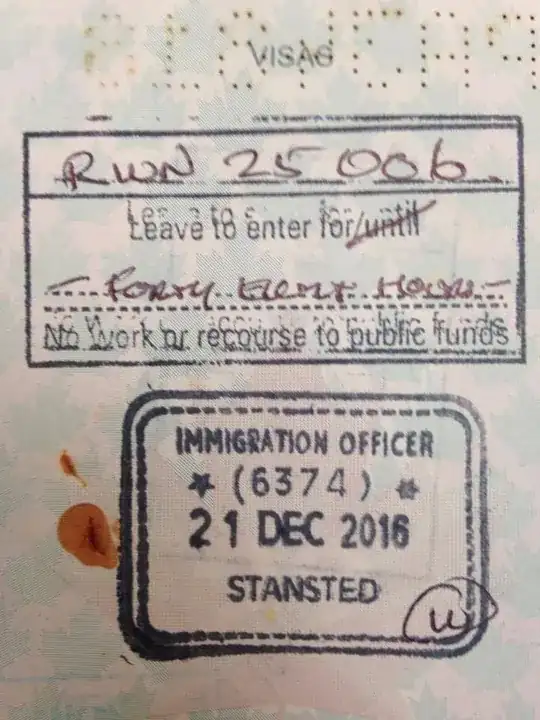 VISAS
RWN 25 006.
Leave to enter for/until
- FORTY EIGHT HOURS -
No work or recourse to public funds
IMMIGRATION OFFICER
* (6374) *
21 DEC 2016
STANSTED